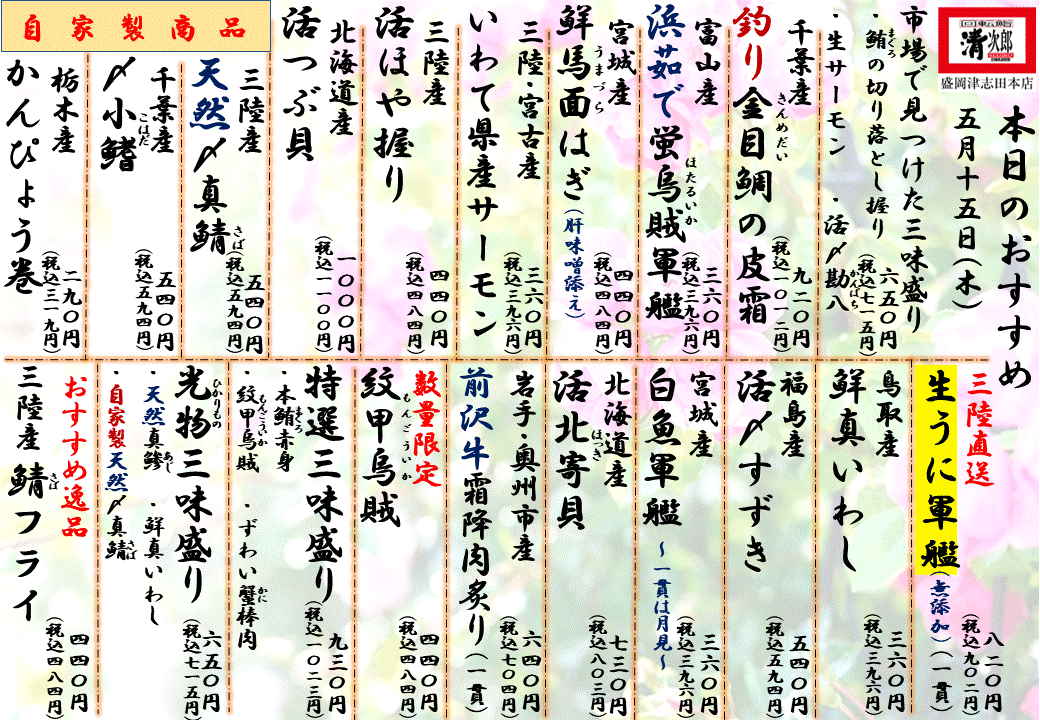 回転鮨
清次郎
盛岡津志田本店
本日のおすすめ
五月十五日(木)
市場で見つけた三味盛り
・鮪の切り落とし握り
まぐろ
・生サーモン ・活〆勘八
かんぱち
六五〇円
(税込七一五円)
千葉産
釣り金目鯛の皮霜
きんめだい
九二〇円
(税込一〇一二円)
富山産
浜茹で蛍烏賊軍艦
ほたるいか
三六〇円
(税込三九六円)
宮城産
鮮馬面はぎ(肝味噌添え)
うまづら
四四〇円
(税込四八四円)
三陸・宮古産
いわて県産サーモン
三六〇円
(税込三九六円)
三陸産
活ほや握り
四四〇円
(税込四八四円)
北海道産
活つぶ貝
一〇〇〇円
(税込一一〇〇円)
自家製商品
三陸産
天然〆真鯖
さば
五四〇円
(税込五九四円)
千葉産
〆小鰭
こはだ
五四〇円
(税込五九四円)
栃木産
かんぴょう巻
二九〇円
(税込三一九円)
三陸直送
生うに軍艦(無添加)(一貫)
八二〇円
(税込九〇二円)
鳥取産
鮮真いわし
三六〇円
(税込三九六円)
福島産
活〆すずき
五四〇円
(税込五九四円)
宮城産
白魚軍艦 ～一貫は月見～
三六〇円
(税込三九六円)
北海道産
活北寄貝
ほっき
七三〇円
(税込八〇三円)
岩手・奥州市産
前沢牛霜降肉炙り(一貫)
六四〇円
(税込七〇四円)
数量限定
紋甲烏賊
もんごういか
四四〇円
(税込四八四円)
特選三味盛り
・本鮪赤身
まぐろ
・紋甲烏賊 ・ずわい蟹棒肉
もんごういか
かに
九三〇円
(税込一〇二三円)
光物三味盛り
ひかりもの
・天然真鯵 ・鮮真いわし
あじ
・自家製天然〆真鯖
さば
六五〇円
(税込七一五円)
おすすめ逸品
三陸産 鯖フライ
さば
四四〇円
(税込四八四円)